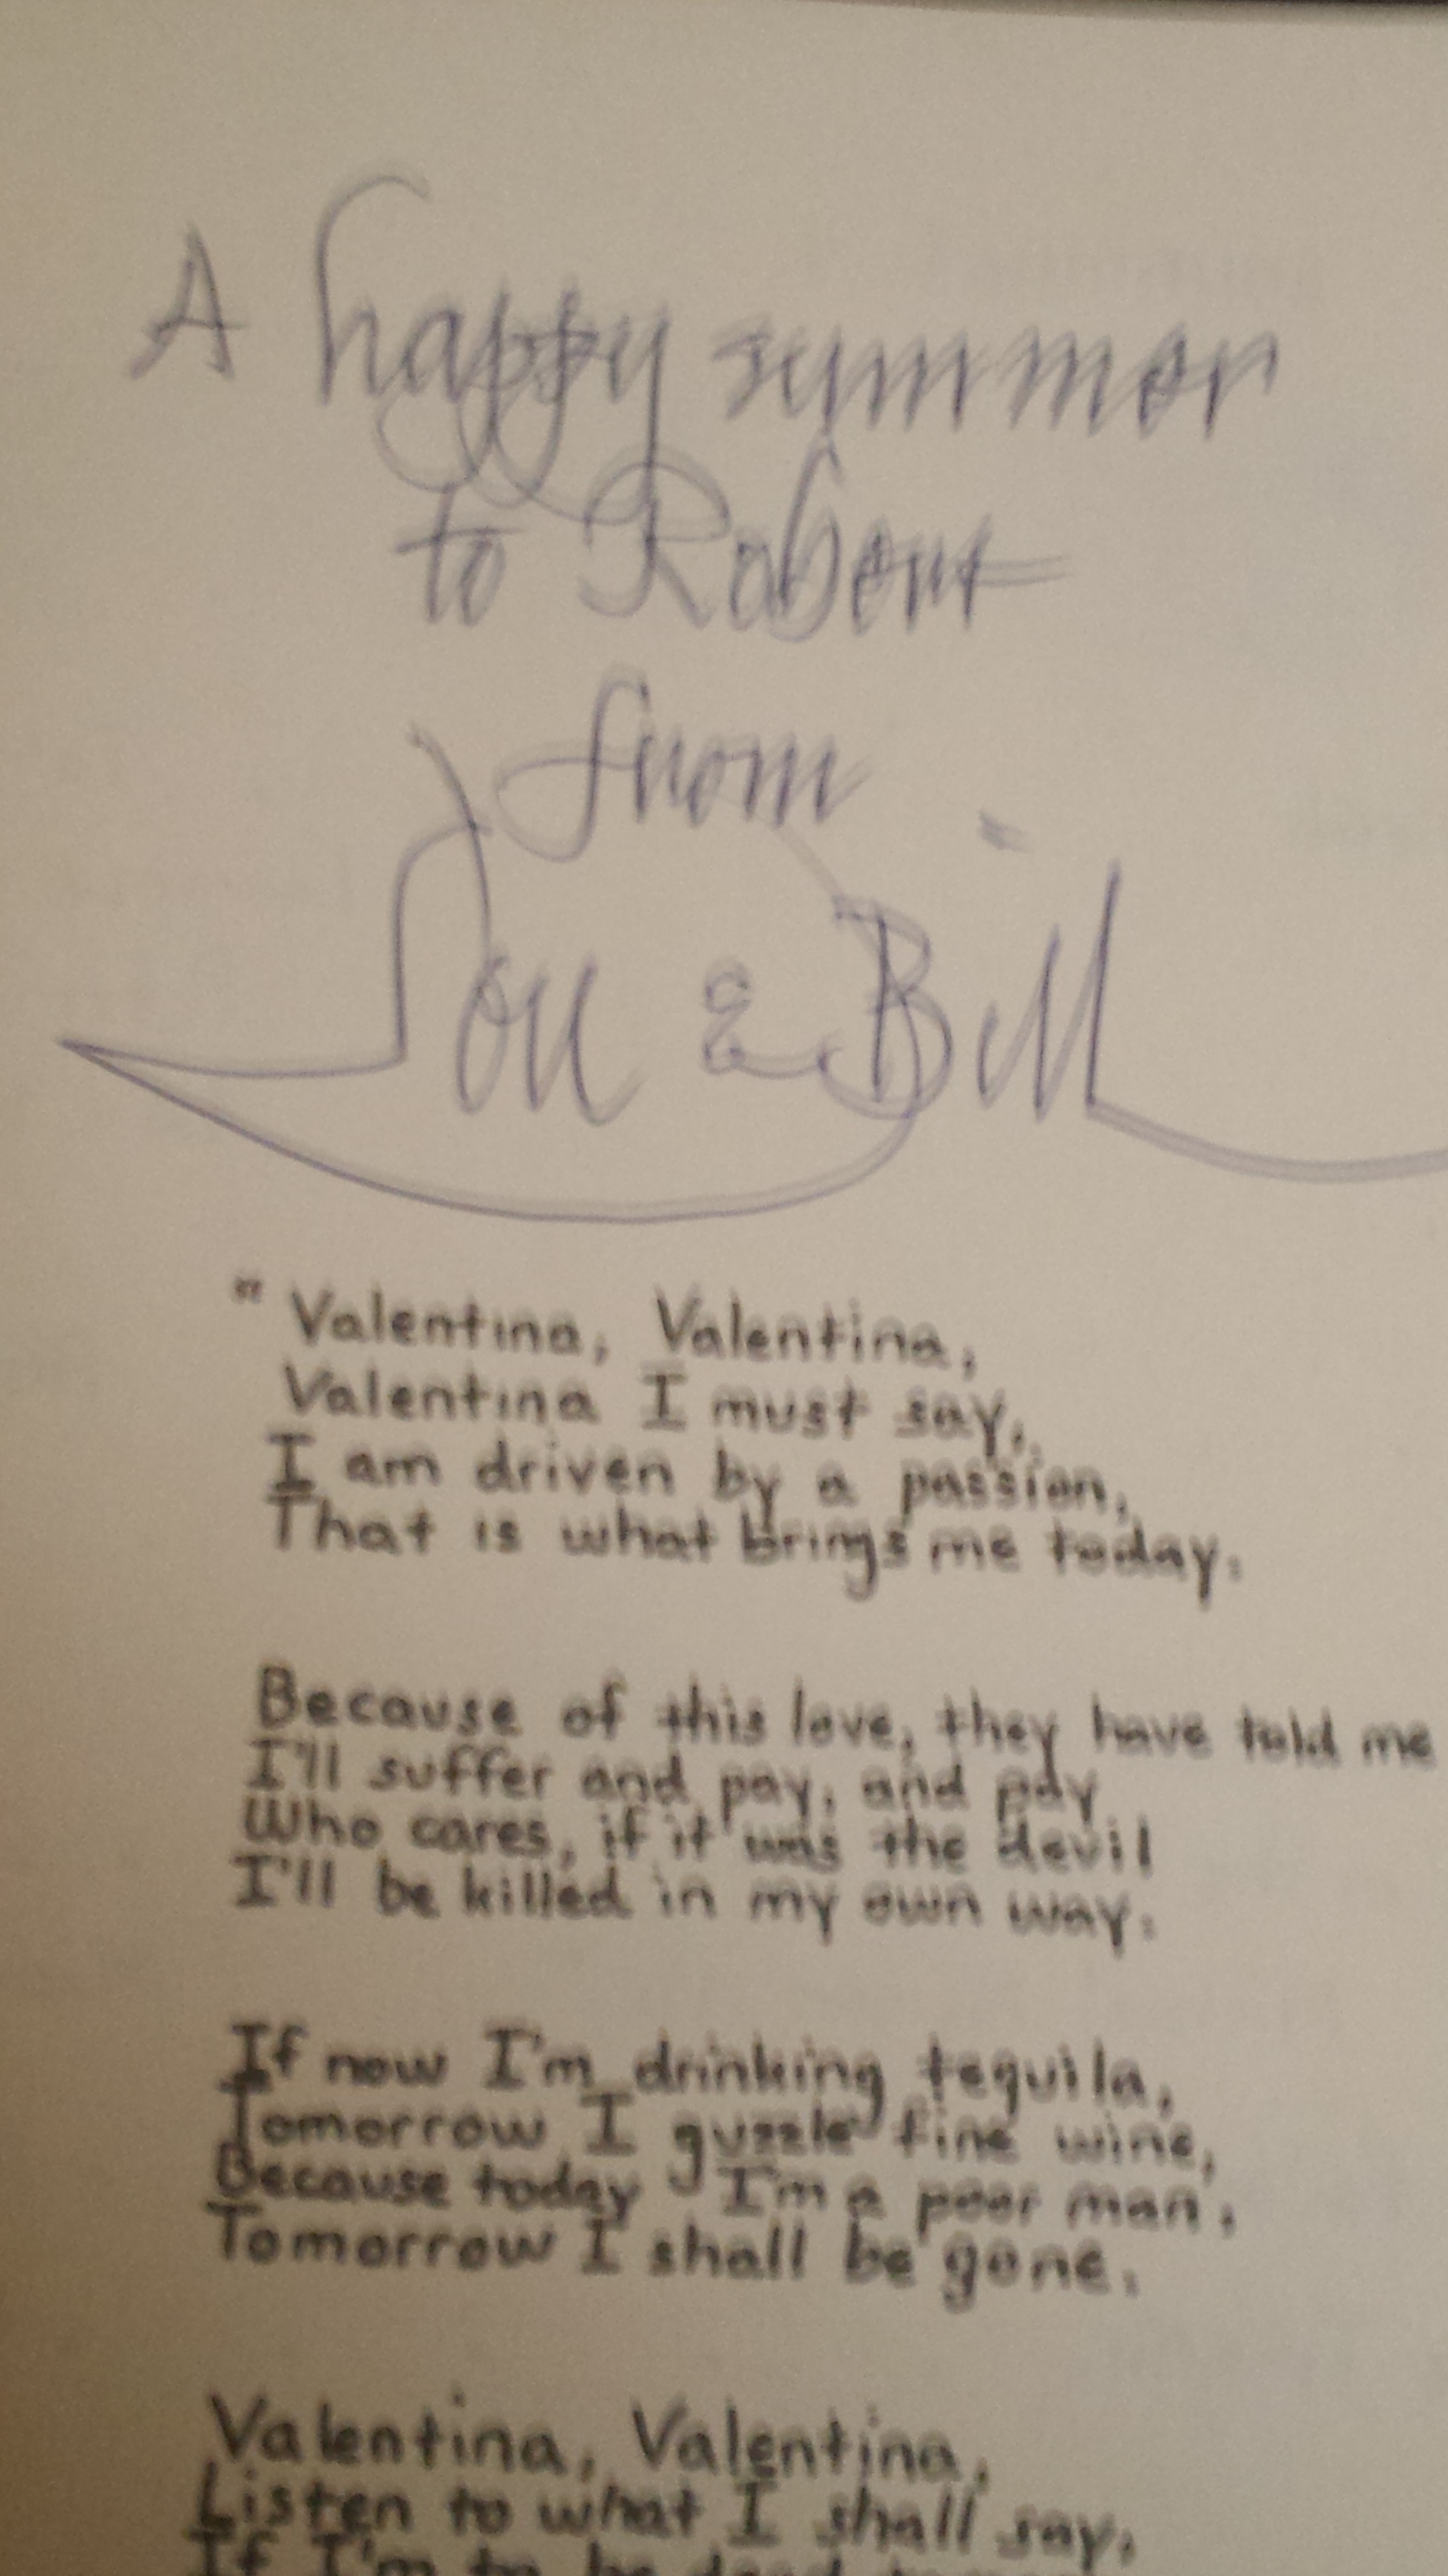 A happy summer
to Robert
from
Lou & Bill
" Valentina, Valentina,
Valentina I must say,
I am driven by a passion,
That is what brings me today.
Because of this love, they have told me
I'll suffer and pay, and pay
Who cares, if it was the devil
I'll be killed in my own way.
If now I'm drinking tequila,
Tomorrow I guzzle fine wine,
Because today I'm a poor man,
Tomorrow I shall be gone.
Valentina, Valentina,
Listen to what I shall say,
If I'm to be dead